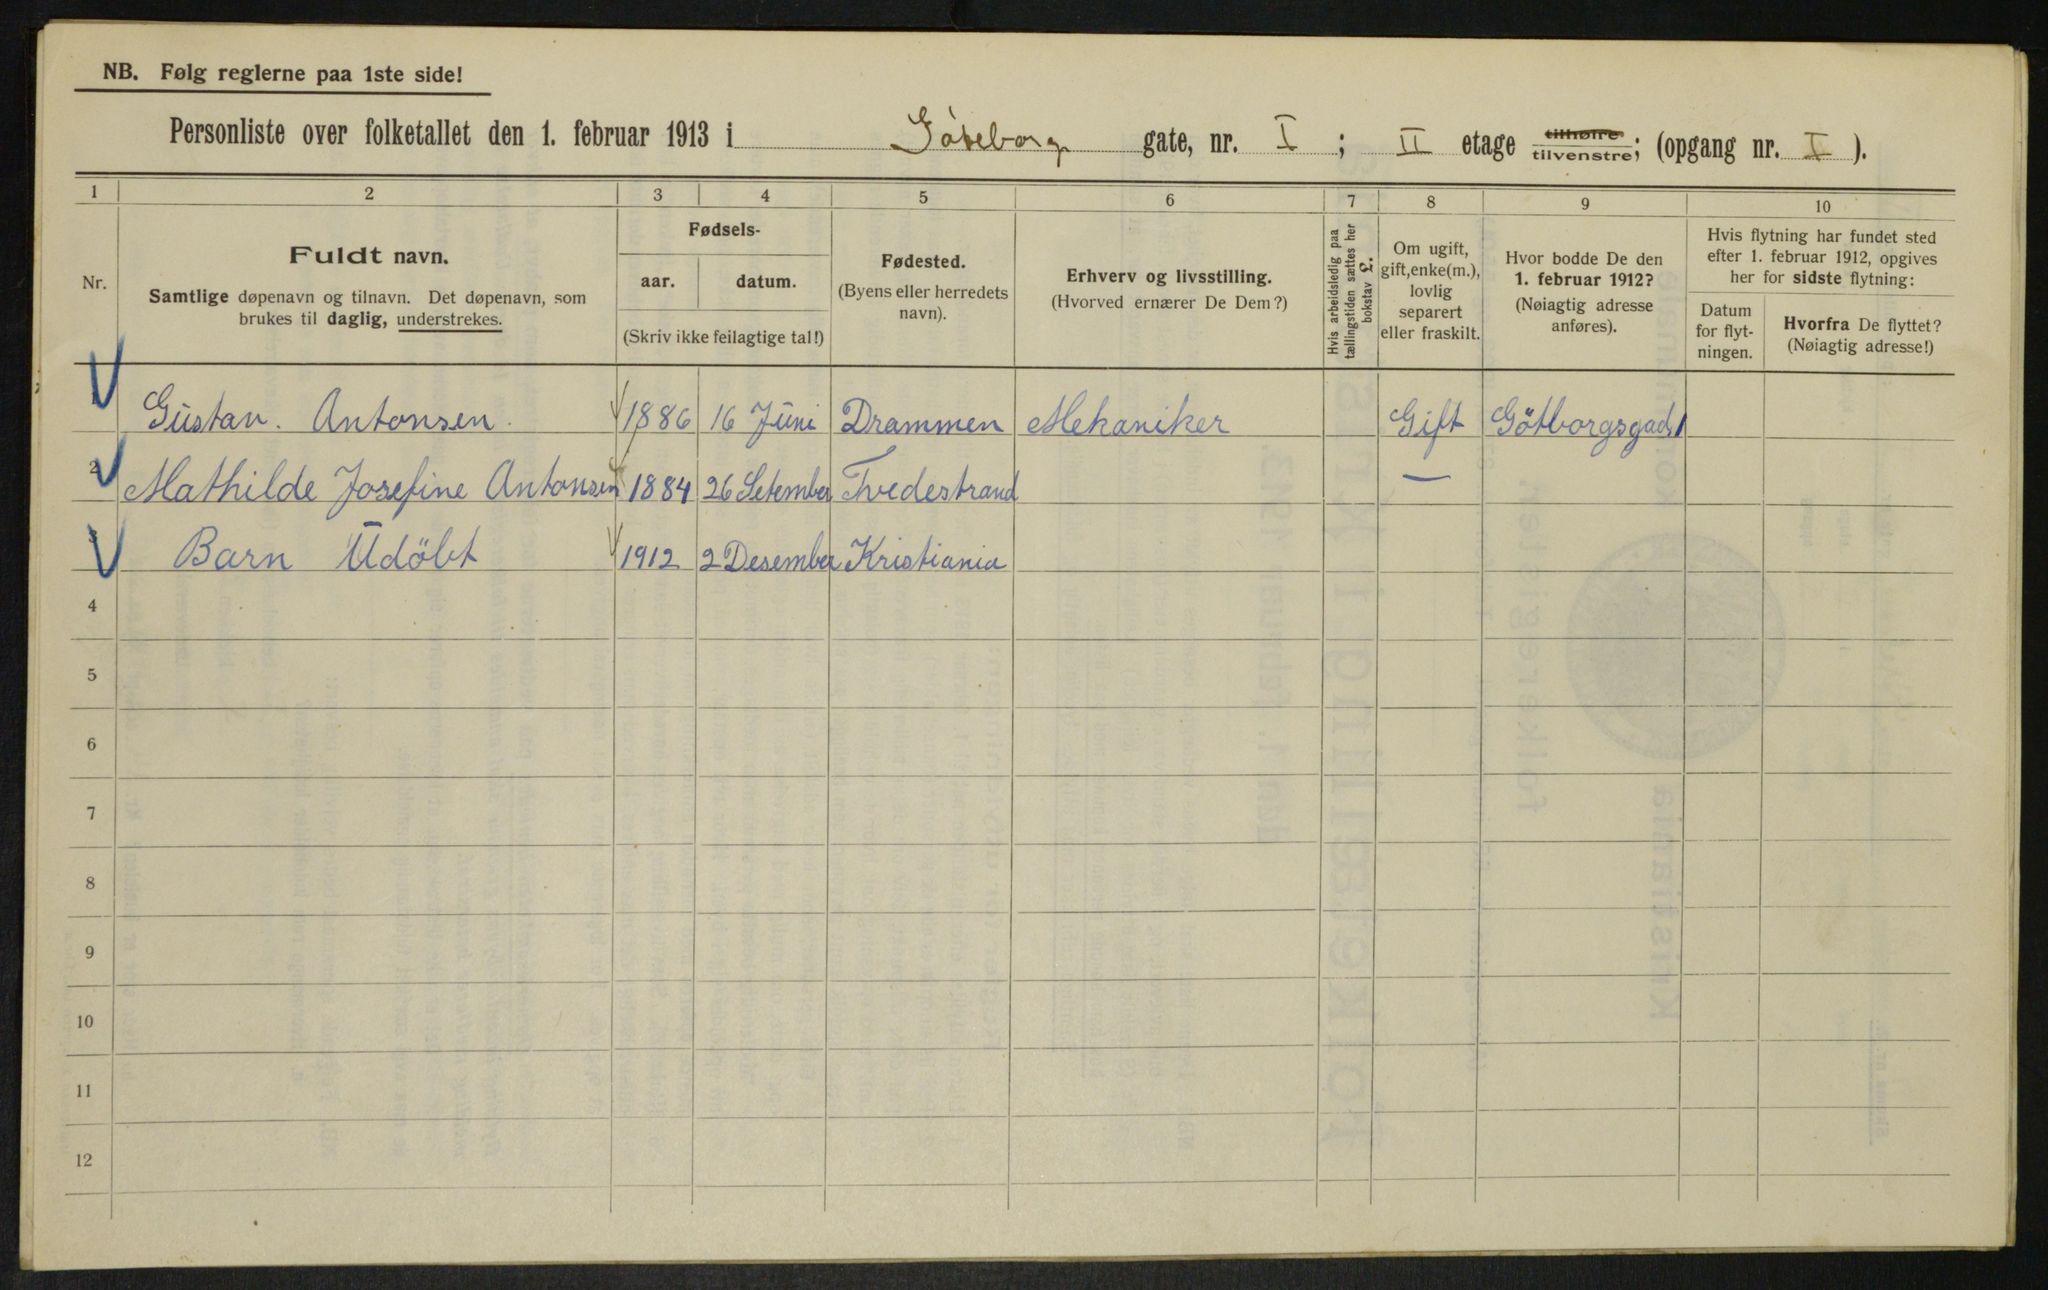 NB. Følg reglerne paa 1ste side!
Personliste over folketallet den 1. februar 1913 i Göteborg gate, nr. I ; II etage tilhøire tilvenstre; (opgang nr. I ).
1 2 3 4 5 6 7 8 9 10
Nr.
Fuldt navn.
Samtlige døpenavn og tilnavn. Det døpenavn, som
brukes til daglig, understrekes.
Fødsels-
aar. datum.
(Skriv ikke feilagtige tal!)
Fødested.
(Byens eller herredets
navn).
Erhverv og livsstilling.
(Hvorved ernærer De Dem?)
Hvis arbeidsledig paa
tællingstiden sættes her
bokstav L.
Om ugift,
gift, enke(m.),
lovlig
separert
eller fraskilt.
Hvor bodde De den
1. februar 1912?
(Nøiagtig adresse
anføres).
Hvis flytning har fundet sted
efter 1. februar 1912, opgives
her for sidste flytning:
Datum
for flyt-
ningen.
Hvorfra De flyttet?
(Nøiagtig adresse!)
1 Gustav. Antonsen. 1886 16 Juni Drammen Mekaniker Gift Götborgsgad 1
2 Mathilde Josefine Antonsen 1884 26 Setember Tvedestrand —
3 Barn Udöbt 1912 2 Desember Kristiania
4
5
6
7
8
9
10
11
12